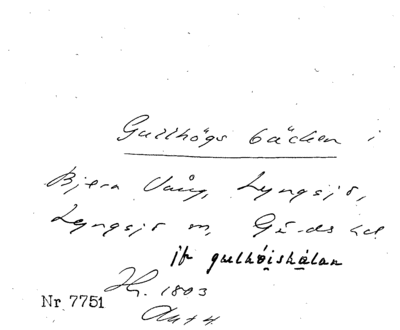 Gullhögs bäcken i
Bjera Vång, Lyngsjö,
Lyngsjö m, Gärds hd
jfr gullhöishålan
Hr. 1803
Nr 7751